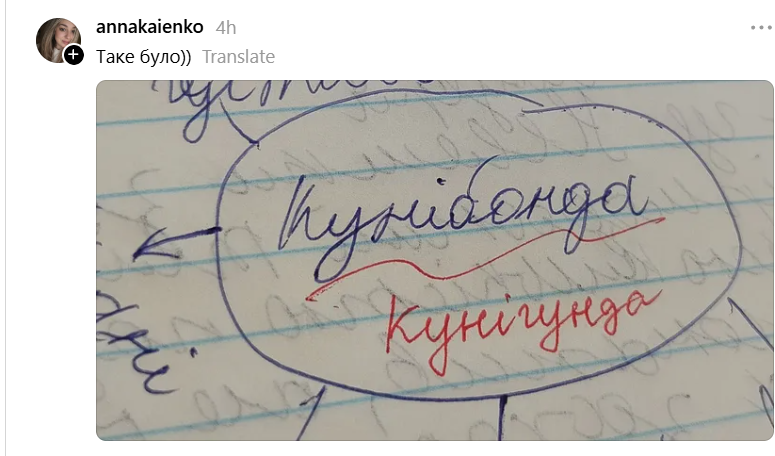 annakaienko 4h
Таке було)) Translate
Кунібонда
Кунігунда
дні